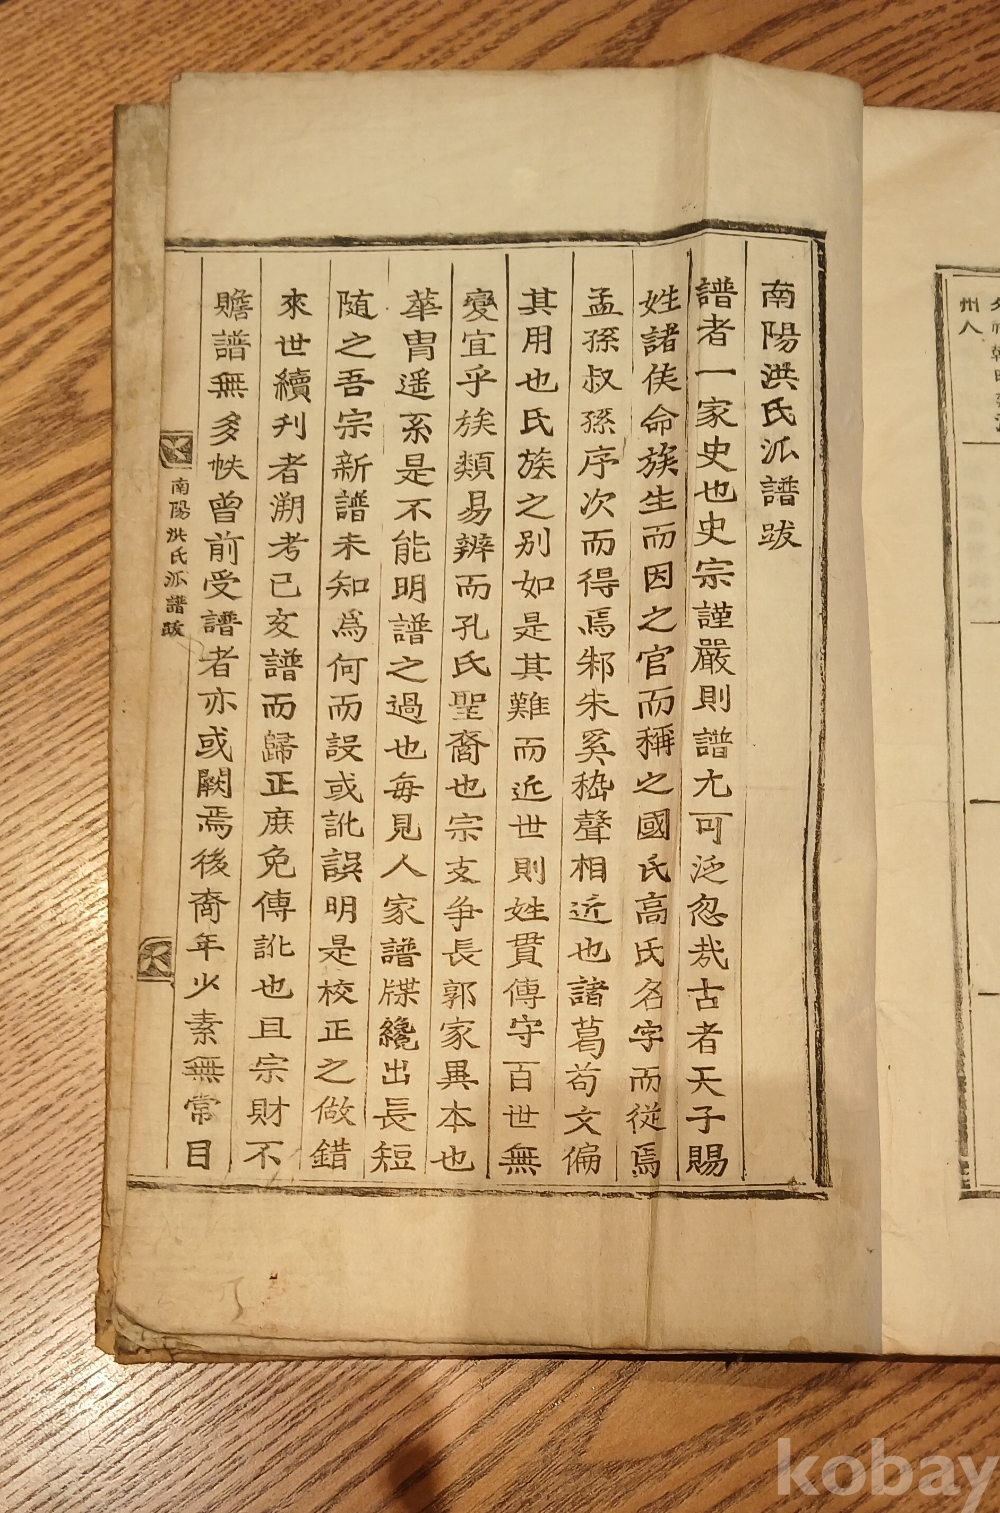 南陽洪氏派譜跋
譜者一家史也史宗謹嚴則譜尤可泛忽哉古者天子賜
姓諸侯命族生而因之官而稱之國氏高氏名字而從焉
孟孫叔孫序次而得焉邾朱奚嵇聲相近也諸葛苟文偏
其用也氏族之别如是其難而近世則姓貫傳守百世無
變宜乎族類易辨而孔氏聖裔也宗支争長郭家異本也
華胄遥系是不能明譜之過也每見人家譜牒纔出長短
随之吾宗新譜未知爲何而設或訛誤明是校正之做錯
來世續刋者溯考已亥譜而歸正庻免傳訛也且宗財不
贍譜無多帙曾前受譜者亦或闕焉後裔年少素無常目
南陽洪氏派譜跋
州人
kobay